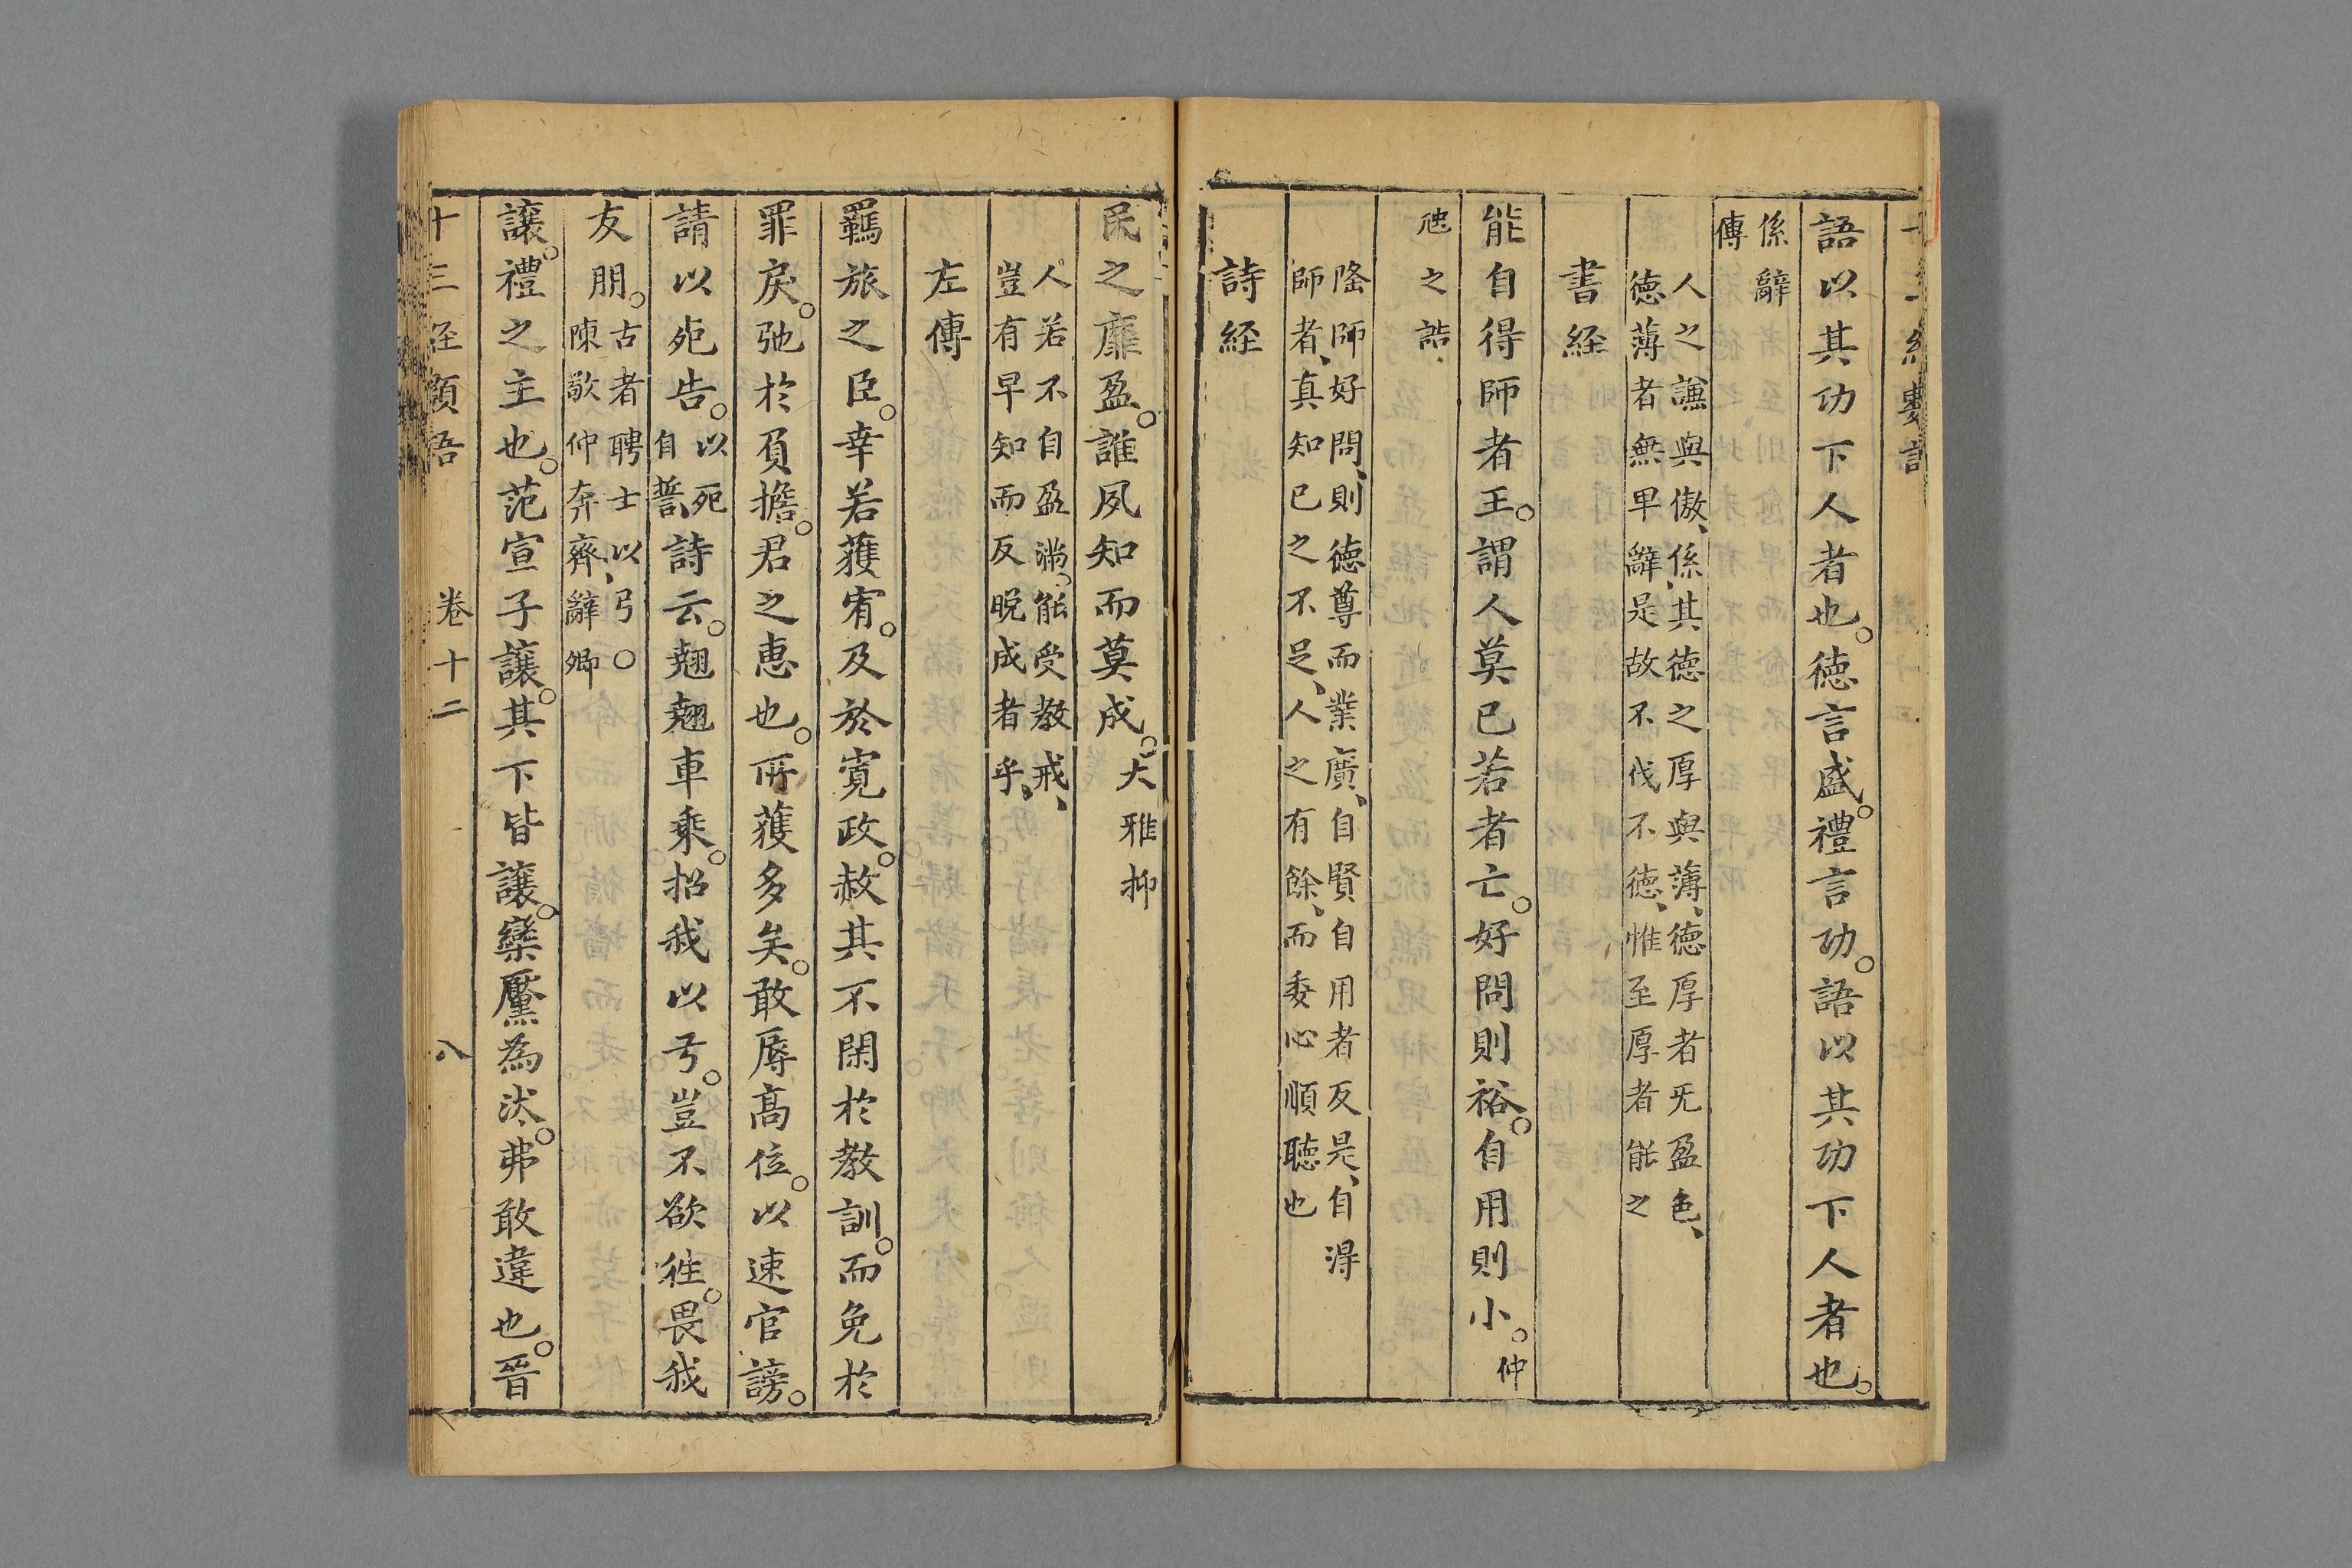 語以其功下人者也。德言盛。禮言功。語以其功下人者也。
係辭
傳
人之謙與傲、係其德之厚與薄、德厚者无盈色、
德薄者無卑辭、是故不伐不德、惟至厚者能之
書経
能自得師者王。謂人莫已若者亡。好問則裕。自用則小。仲
虺之誥
隆師好問、則德尊而業廣、自賢自用者反是、自得
師者、真知已之不足、人之有餘、而委心順聽也
詩経
民之靡盈。誰夙知而莫成。大雅抑
人若不自盈滿。能受教戒、
豈有早知而反晚成者乎、
左傳
羈旅之臣。幸若獲宥。及於寬政。赦其不閑於教訓。而免於
罪戾。弛於負擔。君之惠也。所獲多矣。敢辱高位。以速官謗。
請以死告。以死自誓、詩云。翹翹車乘。招我以弓。豈不欲往。畏我
友朋。古者聘士以弓〇陳敬仲奔齊、辭卿
讓。禮之主也。范宣子讓。其下皆讓。欒黶為汰。弗敢違也。晉
十三経類語 卷十二 八